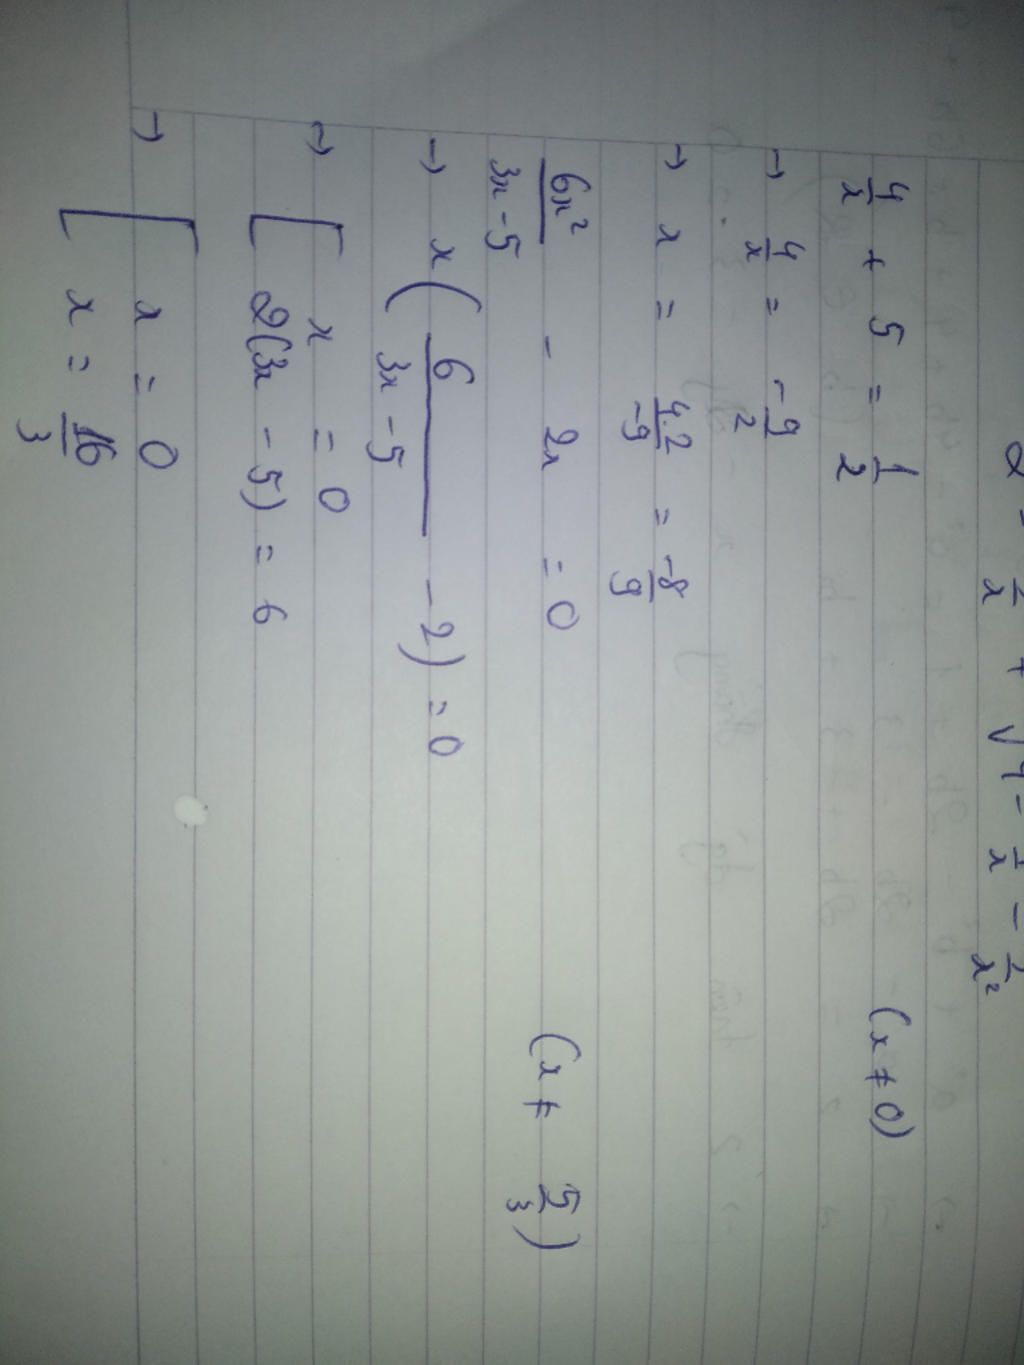 2 = 1/x + √(4 - 1/x - 1/x²
4/x + 5 = 1/2 (x ≠ 0)
→ 4/x = -9/2
→ x = 4.2/-9 = -8/9
6x²/3x-5 - 2x = 0 (x ≠ 5/3)
→ x(6/3x-5 - 2) = 0
→ [ x = 0
2(3x - 5) = 6
→ [ x = 0
x = 16/3